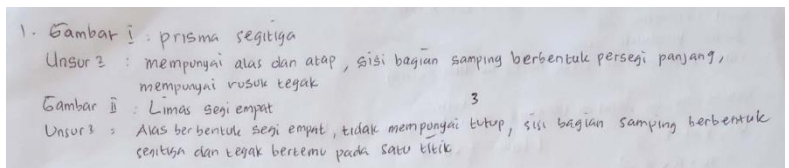 1. Gambar I : prisma segitiga
Unsur2 : mempunyai alas dan atap, sisi bagian samping berbentuk persegi panjang,
mempunyai rusuk tegak
Gambar II : Limas segi empat
3
Unsur2 : Alas berbentuk segi empat, tidak mempunyai tutup, sisi bagian samping berbentuk
segitiga dan tegak bertemu pada satu titik.